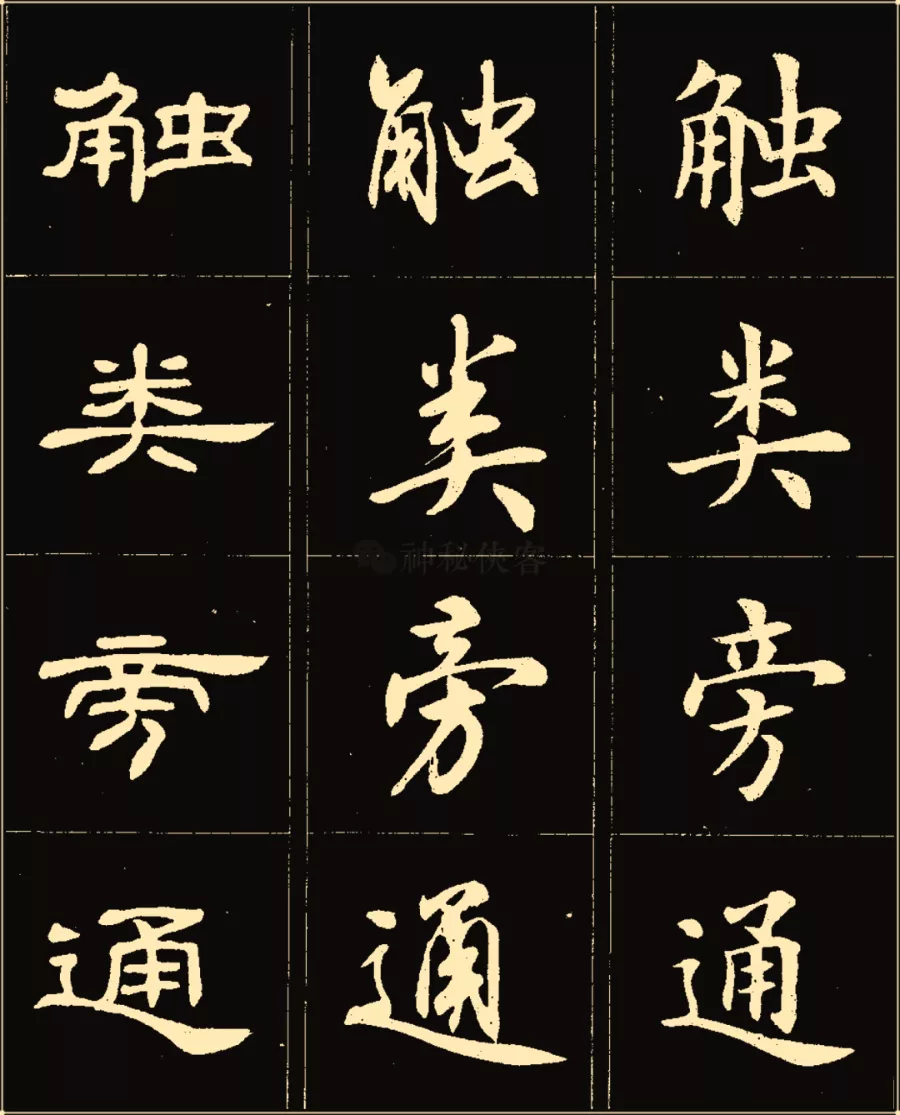 触 触 触
类 类 类
神秘侠客
旁 旁 旁
通 通 通